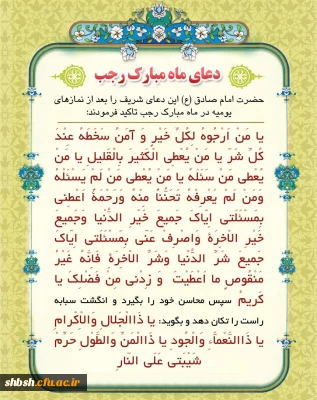 دعای ماه مبارک رجب
حضرت امام صادق (ع) این دعای شریف را بعد از نمازهای
یومیه در ماه مبارک رجب تاکید فرمودند:
یا مَن اَرجُوهُ لِکُلِّ خَیرٍ وَ آمَنُ سَخَطَهُ عِندَ
کُلِّ شَرٍّ یا مَنْ یُعْطِی الْکَثیرَ بِالْقَلیلِ یا مَنْ
یُعْطی مَنْ سَئَلَهُ یا مَنْ یُعْطی مَنْ لَمْ یَسْئَلْهُ
وَمَن لَمْ یَعْرِفْهُ تَحَنُّناً مِنْهُ وَرَحْمَةً اَعْطِنی
بِمَسْئَلَتی اِیّاکَ جَمیعَ خَیْرِ الدُّنْیا وَجَمیعَ
خَیْرِ الاْخِرَةِ وَاصرِف عَنّی بِمَسْئَلَتی اِیّاکَ
جَمیعَ شَرِّ الدُّنْیا وَشَرِّ الاْخِرَةِ فَاِنَّهُ غَیْرُ
مَنْقُوصٍ ما اَعْطَیْتَ وَ زِدْنی مِنْ فَضْلِکَ یا
کَریمُ سپس محاسن خود را بگیرد و انگشت سبابه
راست را تکان دهد و بگوید: یا ذَاالْجَلالِ وَالاِْکْرامِ
یا ذَاالنَّعْماَّءِ وَالْجُودِ یا ذَاالْمَنِّ وَالطَّوْلِ حَرِّمْ
شَیْبَتی عَلَی النّارِ
shbsh.cfu.ac.ir